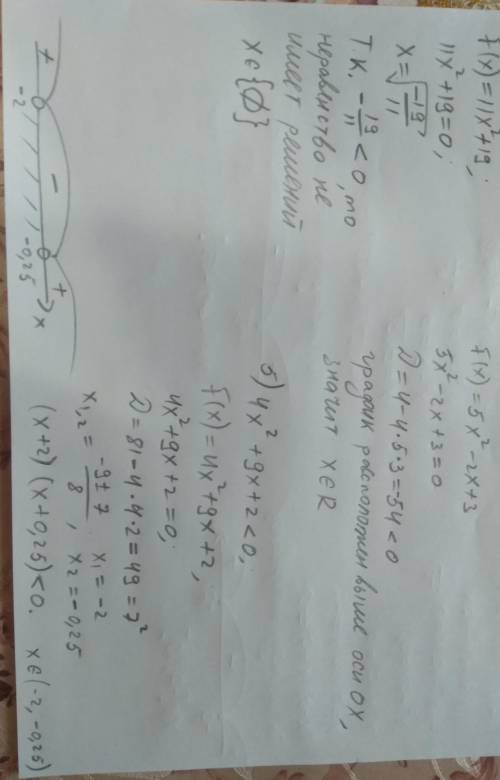 f(x) = 11x² + 19;
11x² + 19 = 0;
x = √(-19/11)
Т.К. -19/11 < 0, то
неравенство не
имеет решений
x ∈ {∅}
f(x) = 5x² - 2x + 3
5x² - 2x + 3 = 0
D = 4 - 4·5·3 = -54 < 0
график расположен выше оси OX,
значит x ∈ R
б) 4x² + 9x + 2 < 0;
f(x) = 4x² + 9x + 2,
4x² + 9x + 2 = 0;
D = 81 - 4·4·2 = 49 = 7²
x₁,₂ = (-9 ± 7)/8, x₁ = -2
x₂ = -0,25
(x+2)(x+0,25) < 0. x ∈ (-2, -0,25)
+ - +
-2 -0,25 x